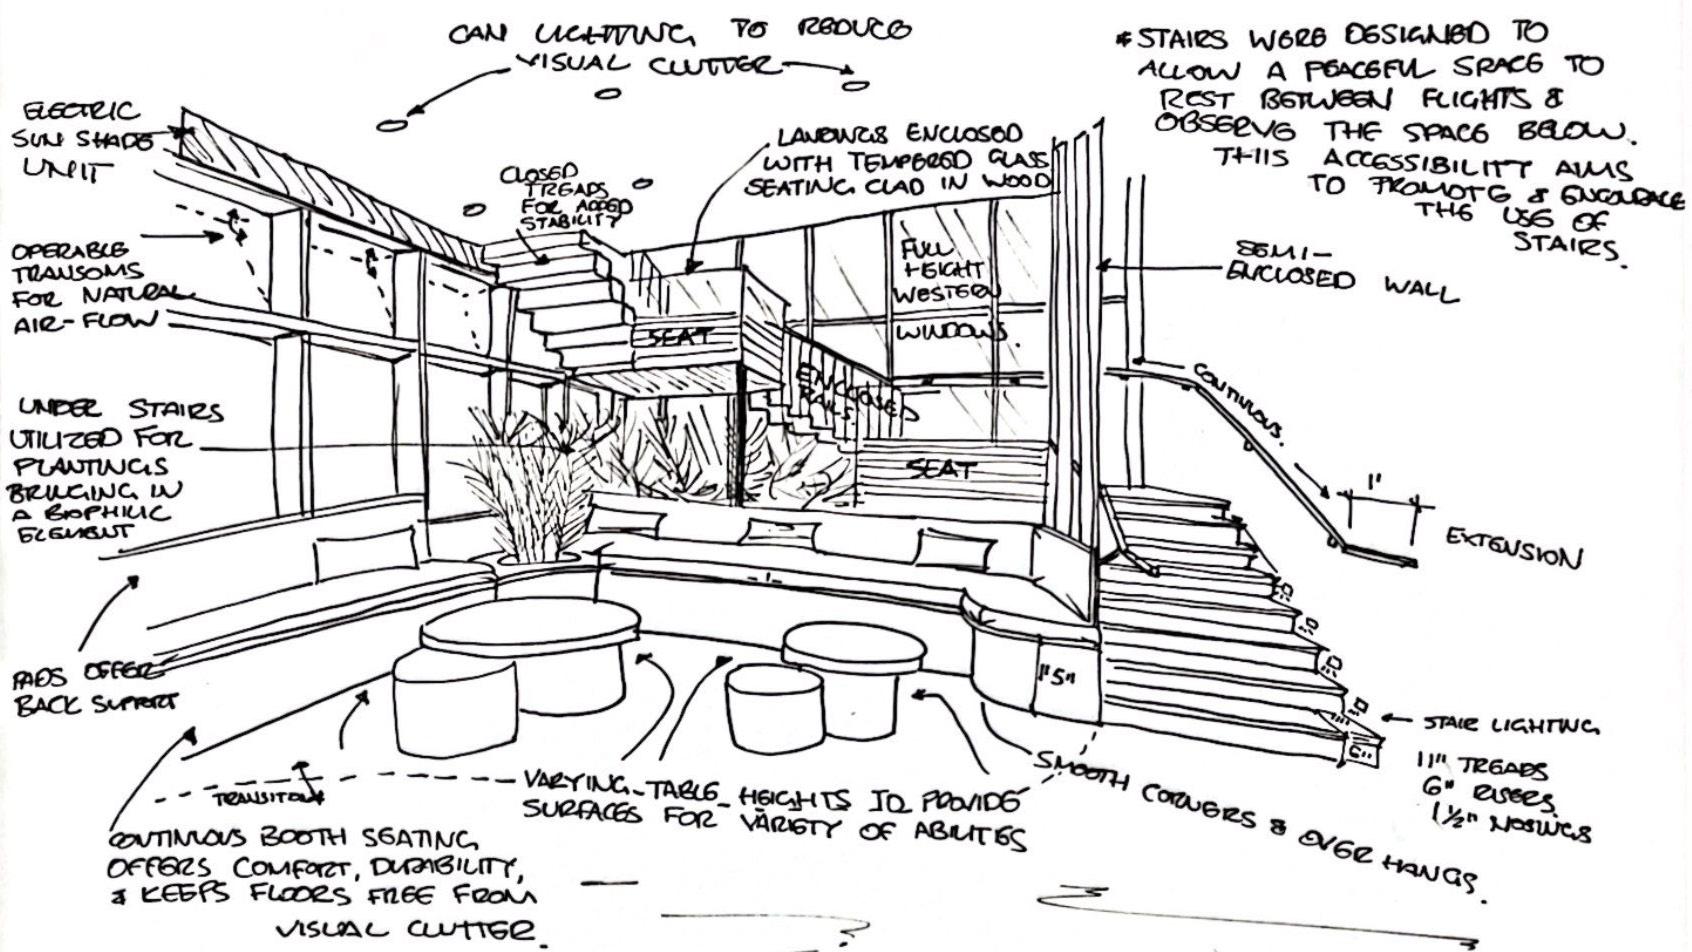 CAN LIGHTING TO REDUCE
VISUAL CLUTTER
* STAIRS WERE DESIGNED TO
ALLOW A PEACEFUL SPACE TO
REST BETWEEN FLIGHTS &
OBSERVE THE SPACE BELOW.
THIS ACCESSIBILITY AIMS
TO PROMOTE & ENCOURAGE
THE USE OF
STAIRS.
ELECTRIC
SUN SHADE
UNIT
CLOSED
TREADS
FOR ADDED
STABILITY
LANDINGS ENCLOSED
WITH TEMPERED GLASS
SEATING CLAD IN WOOD
OPERABLE
TRANSOMS
FOR NATURAL
AIR-FLOW
FULL
HEIGHT
WESTERN
WINDOWS.
SEMI-
ENCLOSED WALL
SEAT
ENCLOSED
RAILS
CONTINUOUS.
UNDER STAIRS
UTILIZED FOR
PLANTINGS
BRINGING IN
A BIOPHILIC
ELEMENT
SEAT
1'
EXTENSION
PADS OFFER
BACK SUPPORT
1'5"
STAIR LIGHTING
11" TREADS
6" RISERS
1½" NOSINGS
6"
TRANSITION
VARYING TABLE HEIGHTS TO PROVIDE
SURFACES FOR VARIETY OF ABILITIES
SMOOTH CORNERS & OVER HANGS.
CONTINUOUS BOOTH SEATING
OFFERS COMFORT, DURABILITY,
& KEEPS FLOORS FREE FROM
VISUAL CLUTTER.